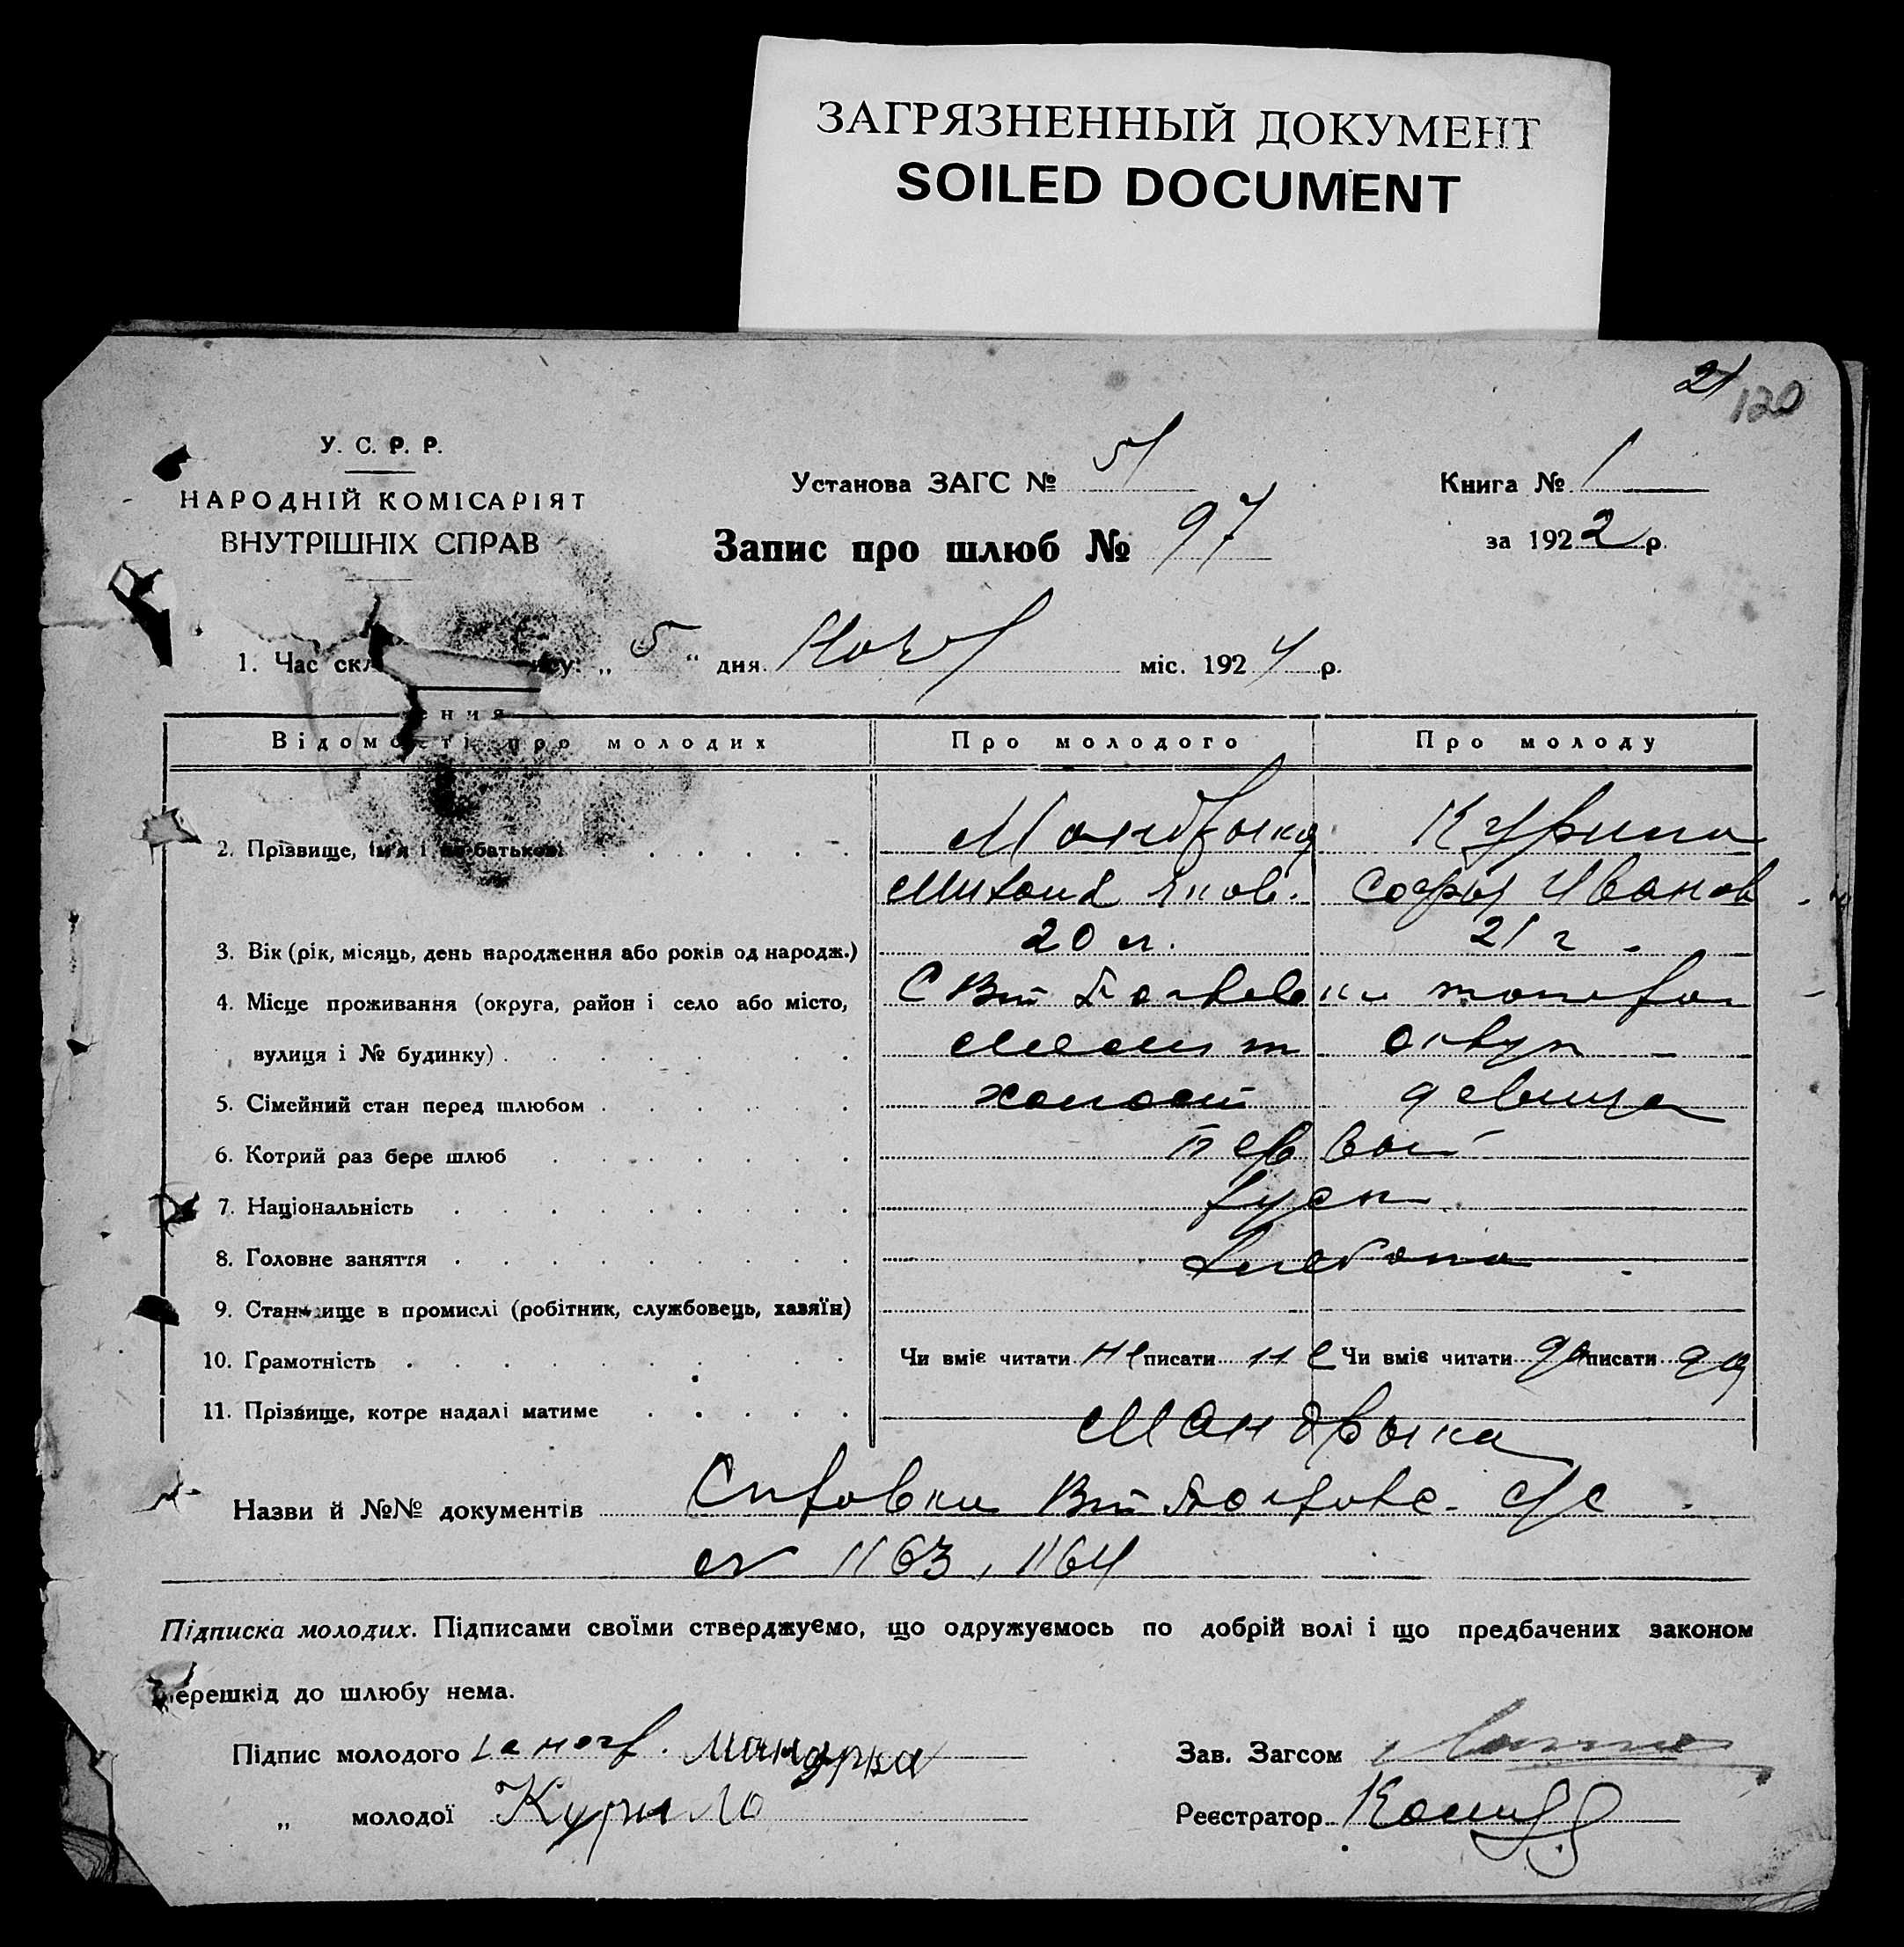 ЗАГРЯЗНЕННЫЙ ДОКУМЕНТ
SOILED DOCUMENT
21
120
У. С. Р. Р.
НАРОДНІЙ КОМІСАРІЯТ
ВНУТРІШНІХ СПРАВ
Установа ЗАГС №
Книга № 1
Запис про шлюб № 97
за 1922 р.
1. Час скл су: „ 5 “ дня міс. 1924 р.
ения
Відомості про молодих Про молодого Про молоду
2. Прізвище, ім'я і по батькові Мандрыка Курило
Яков. Софья Иванов
3. Вік (рік, місяць, день народження або років од народж.) 20 л. 21 г.
4. Місце проживання (округа, район і село або місто, С
вулиця і № будинку) округ
5. Сімейний стан перед шлюбом холост девица
6. Котрий раз бере шлюб первый
7. Національність русск
8. Головне заняття
9. Становище в промислі (робітник, службовець, хазяїн)
10. Грамотність Чи вміє читати не писати не Чи вміє читати да писати да
11. Прізвище, котре надалі матиме Мандрыка
Назви й №№ документів Справки с/с
№ 1163, 1164
Підписка молодих. Підписами своїми стверджуємо, що одружуємось по добрій волі і що предбачених законом
перешкід до шлюбу нема.
Підпис молодого неогр.
Зав. Загсом
„ молодої Курило
Реєстратор